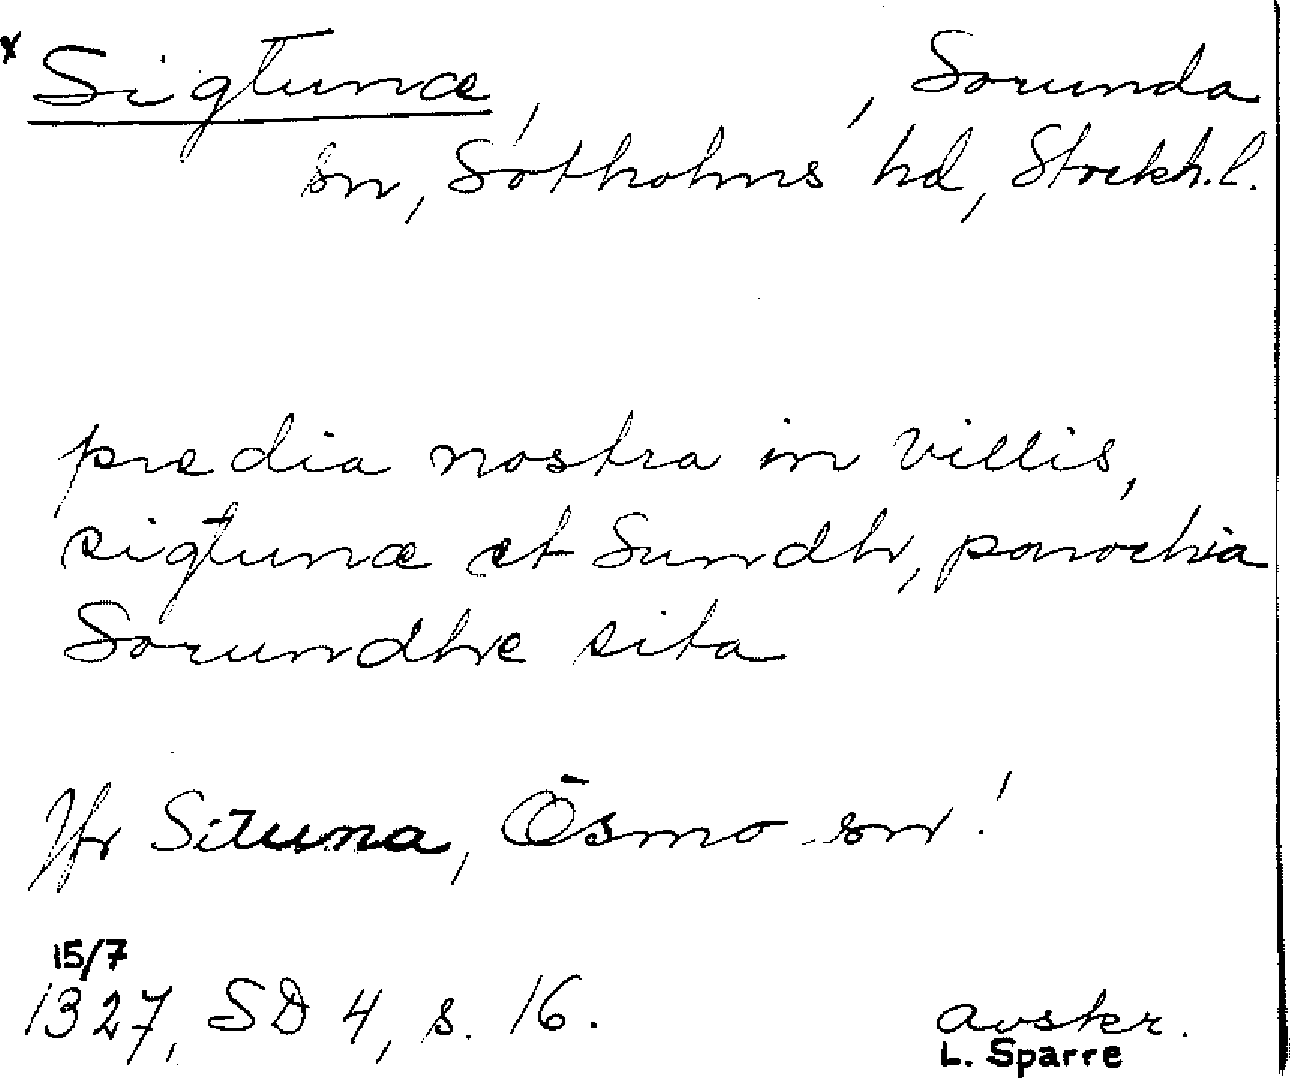 x Sigtunæ, , Sorunda
sn, Sotholms hd, Stockh. l.
predia nostra in villis,
sigtunæ et Sundh, parochia
Sorundhe sita
Jfr Situna, Ösmo sn!
15/7
1327, SD 4, s. 16.
avskr.
L. Sparre